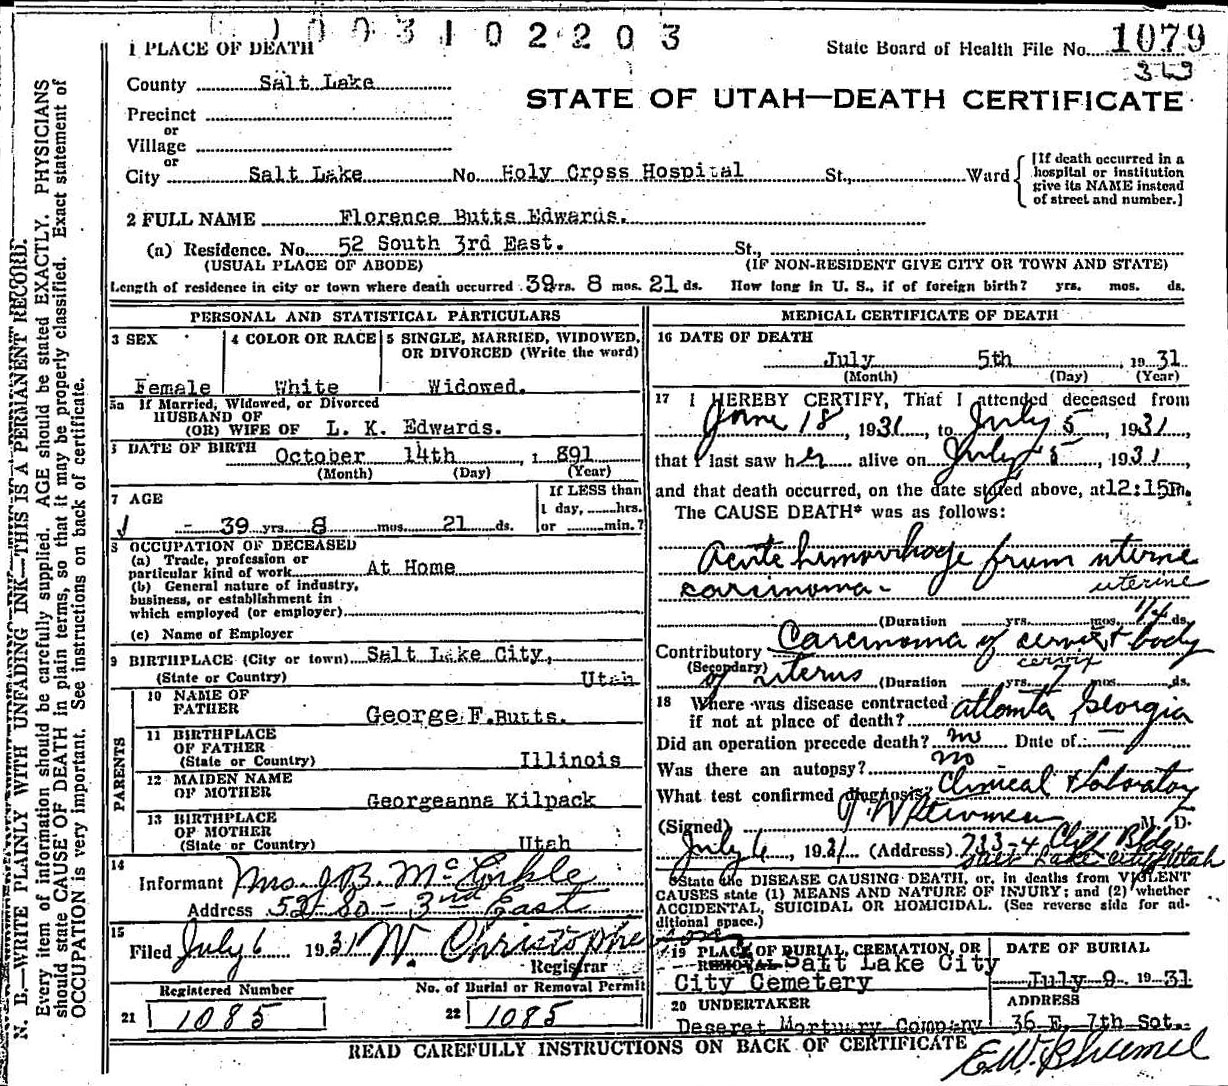 1003102203
1 PLACE OF DEATH
State Board of Health File No. 1079
349
County Salt Lake
STATE OF UTAH—DEATH CERTIFICATE
Precinct
or
Village
or
City Salt Lake No. Holy Cross Hospital St., Ward
[If death occurred in a hospital or institution give its NAME instead of street and number.]
2 FULL NAME Florence Butts Edwards.
(a) Residence. No. 52 South 3rd East. St.,
(USUAL PLACE OF ABODE) (IF NON-RESIDENT GIVE CITY OR TOWN AND STATE)
Length of residence in city or town where death occurred 39 yrs. 8 mos. 21 ds. How long in U. S., if of foreign birth? yrs. mos. ds.
PERSONAL AND STATISTICAL PARTICULARS
3 SEX
Female
4 COLOR OR RACE
White
5 SINGLE, MARRIED, WIDOWED, OR DIVORCED (Write the word)
Widowed.
5a If Married, Widowed, or Divorced
HUSBAND OF
(OR) WIFE OF L. K. Edwards.
6 DATE OF BIRTH October 14th, 1891
(Month) (Day) (Year)
7 AGE
- 39 yrs. 8 mos. 21 ds.
If LESS than
1 day, hrs.
or min.?
8 OCCUPATION OF DECEASED
(a) Trade, profession or
particular kind of work At Home
(b) General nature of industry,
business, or establishment in
which employed (or employer)
(c) Name of Employer
9 BIRTHPLACE (City or town) Salt Lake City,
(State or Country) Utah
PARENTS
10 NAME OF
FATHER George F. Butts.
11 BIRTHPLACE
OF FATHER
(State or Country) Illinois
12 MAIDEN NAME
OF MOTHER Georgeanna Kilpack
13 BIRTHPLACE
OF MOTHER
(State or Country) Utah
14
Informant Mrs J B McCorkle
Address 52 So - 3rd East
15
Filed July 6 1931 W. Christopherson
Registrar
Registered Number
21 1085
No. of Burial or Removal Permit
22 1085
MEDICAL CERTIFICATE OF DEATH
16 DATE OF DEATH
July 5th, 1931
(Month) (Day) (Year)
17 I HEREBY CERTIFY, That I attended deceased from
June 18, 1931, to July 5, 1931,
that I last saw her alive on July 5, 1931,
and that death occurred, on the date stated above, at 12:15 m.
The CAUSE DEATH* was as follows:
Acute hemorrhage from uterine
carcinoma - uterine
(Duration yrs. mos. 1/4 ds.
Contributory Carcinoma of cervix & body
cervix
(Secondary) of uterus (Duration yrs. 7 mos. ds.
18 Where was disease contracted
if not at place of death? Atlanta Georgia
Did an operation precede death? no Date of
Was there an autopsy? no
What test confirmed diagnosis? Clinical & Laboratory
(Signed) M. D.
July 6, 1931 (Address) 713-4 Cliff Bldg
Salt Lake City Utah
*State the DISEASE CAUSING DEATH, or, in deaths from VIOLENT
CAUSES state (1) MEANS AND NATURE OF INJURY; and (2) whether
ACCIDENTAL, SUICIDAL OR HOMICIDAL. (See reverse side for ad-
ditional space.)
19 PLACE OF BURIAL, CREMATION, OR
REMOVAL Salt Lake City
City Cemetery
DATE OF BURIAL
July 9 1931
20 UNDERTAKER
Deseret Mortuary Company
ADDRESS
36 E. 7th Sot.
READ CAREFULLY INSTRUCTIONS ON BACK OF CERTIFICATE
N. B.—WRITE PLAINLY WITH UNFADING INK—THIS IS A PERMANENT RECORD.
Every item of information should be carefully supplied. AGE should be stated EXACTLY. PHYSICIANS
should state CAUSE OF DEATH in plain terms, so that it may be properly classified. Exact statement of
OCCUPATION is very important. See instructions on back of certificate.